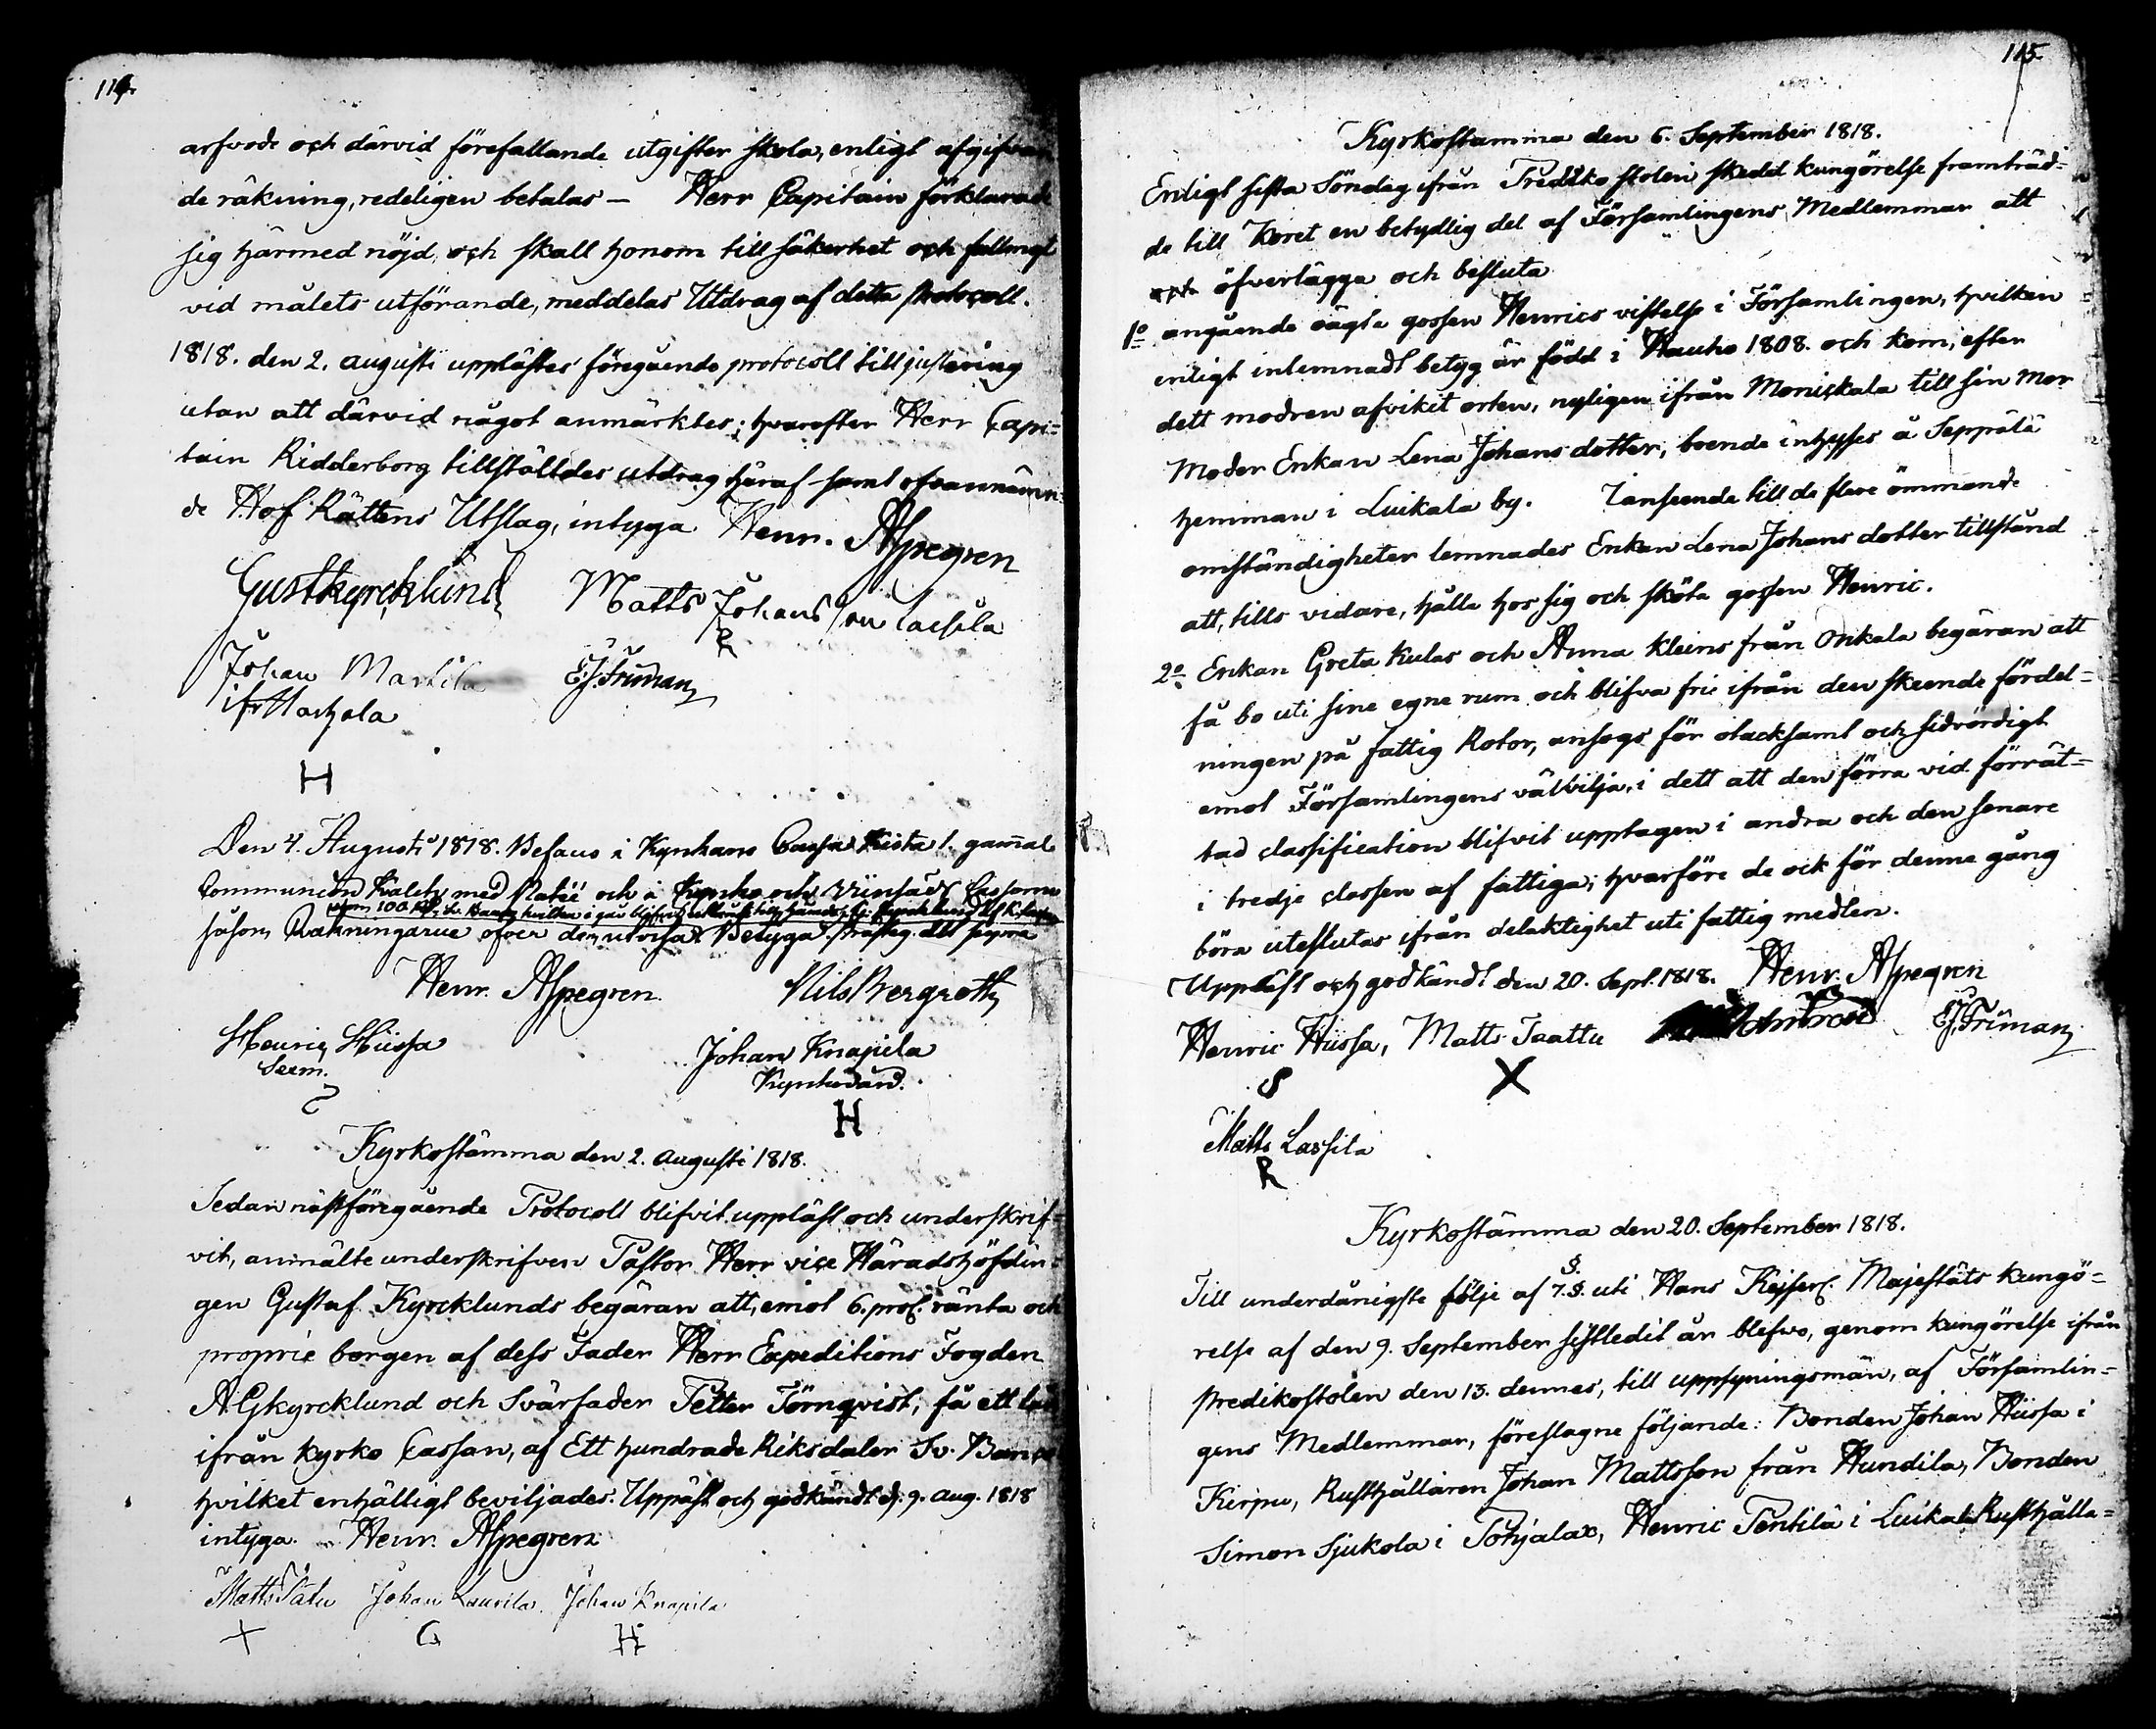 114.
arfvode och därvid förefallande utgifter skola, enligt afgifvan
de räkning, redeligen betalas — Herr Capitain förklarade
sig härmed nöjd, och skall honom till säkerhet och
vid målets utförande, meddelas Utdrag af detta Protocoll.
1818. den 2. augusti upplästes föregående protocoll till justering
utan att därvid något anmärktes; hvarefter Herr Capi=
tain Ridderborg tillställdes utdrag häraf samt ofvannämn=
de Hof Rättens Utslag, intyga Henr. Alpegren
Gust Kyrcklund Matts Johans son Lassila
R
Johan Martila EJ. Friman
ifr
H
Den 4. Augusti 1818. Befans i Kyrkans Cassa Kista 1. gamal
Communion Kalch med Patéé och i Kyrko och Cassorne
såsom Räkningarne öfver dem utvisa. Betyga
Henr. Alpegren Nils Bergroth
Henric Hiissa Johan Knapila
Sexm. Kyrkovärd.
H
Kyrkostämma den 2. augusti 1818.
Sedan nästföregående Protocoll blifvit uppläst och underskrif=
vit, anmälte underskrifven Pastor Herr vice Häradshöfdin=
gen Gustaf Kyrcklunds begäran att, emot 6. proc. ränta och
proprie borgen af dess Fader Herr Expeditions Fogden
AG Kyrcklund och Svärfader Petter Törnqvist, få ett lån
ifrån Kyrko Cassan, af Ett hundrade Riksdaler Sv. Banco
hvilket enhälligt beviljades. Uppläst och godkändt d. 9. Aug. 1818
intyga. Henr. Alpegren
Matts Tatu Johan Laurila. Johan Knapila
X G H
115.
Kyrkostamma den 6. September 1818.
Enligt sista Söndag ifrån Predikostolen skedd kungörelse framträd=
de till Koret en betydlig del af Församlingens Medlemmar att
öfverlägga och besluta
1o angående oägta gossen Henrics vistelse i Församlingen, hvilken
enligt inlemnadt betyg är född i Hauho 1808. och kom, efter
dett modren afvikit orten, nyligen ifrån Moniskala till sin Mor
Moder Enkan Lena Johans dotter, boende inhyses å Seppälä
hemman i Luikala by. I anseende till de flere ömmande
omständigheter lemnades Enkan Lena Johans dotter tillstånd
att, tills vidare, hålla hos sig och sköta gossen Henric.
2o Enkan Greta Kulas och Anna Kleins från Onkala begäran att
få bo uti sine egne rum och blifva frie ifrån den skeende fördel=
ningen på fattig Rotor, ansags för otacksamt och sidvördigt
emot Församlingens välvilja, i dett att den förra vid förrät=
tad classification blifvit upptagen i andra och den senare
i tredje classen af fattiga; hvarföre de ock för denna gång
böra uteslutas ifrån delaktighet uti fattig medlen.
Uppläst och godkändt den 20. Sept. 1818. Henr. Alpegren
Henric Hiissa, Matts Taattu EJ. Friman
S X
Matts Lassila
R
Kyrkostämma den 20. September 1818.
Till underdånigste följe af 7. §. uti Hans Kejserl. Majestäts kungö=
relse af den 9. September sistledit år blefvo, genom kungörelse ifrån
Predikostolen den 13. dennes, till uppsyningsmän, af Församlin=
gens Medlemmar, föreslagne följande: Bonden Johan Hiissa i
Kirpu, Rusthållaren Johan Mattsson från Hundila, Bonden
Simon Sjukola i Pohjalax, Henric Pentilä i Luikala Rusthålla=